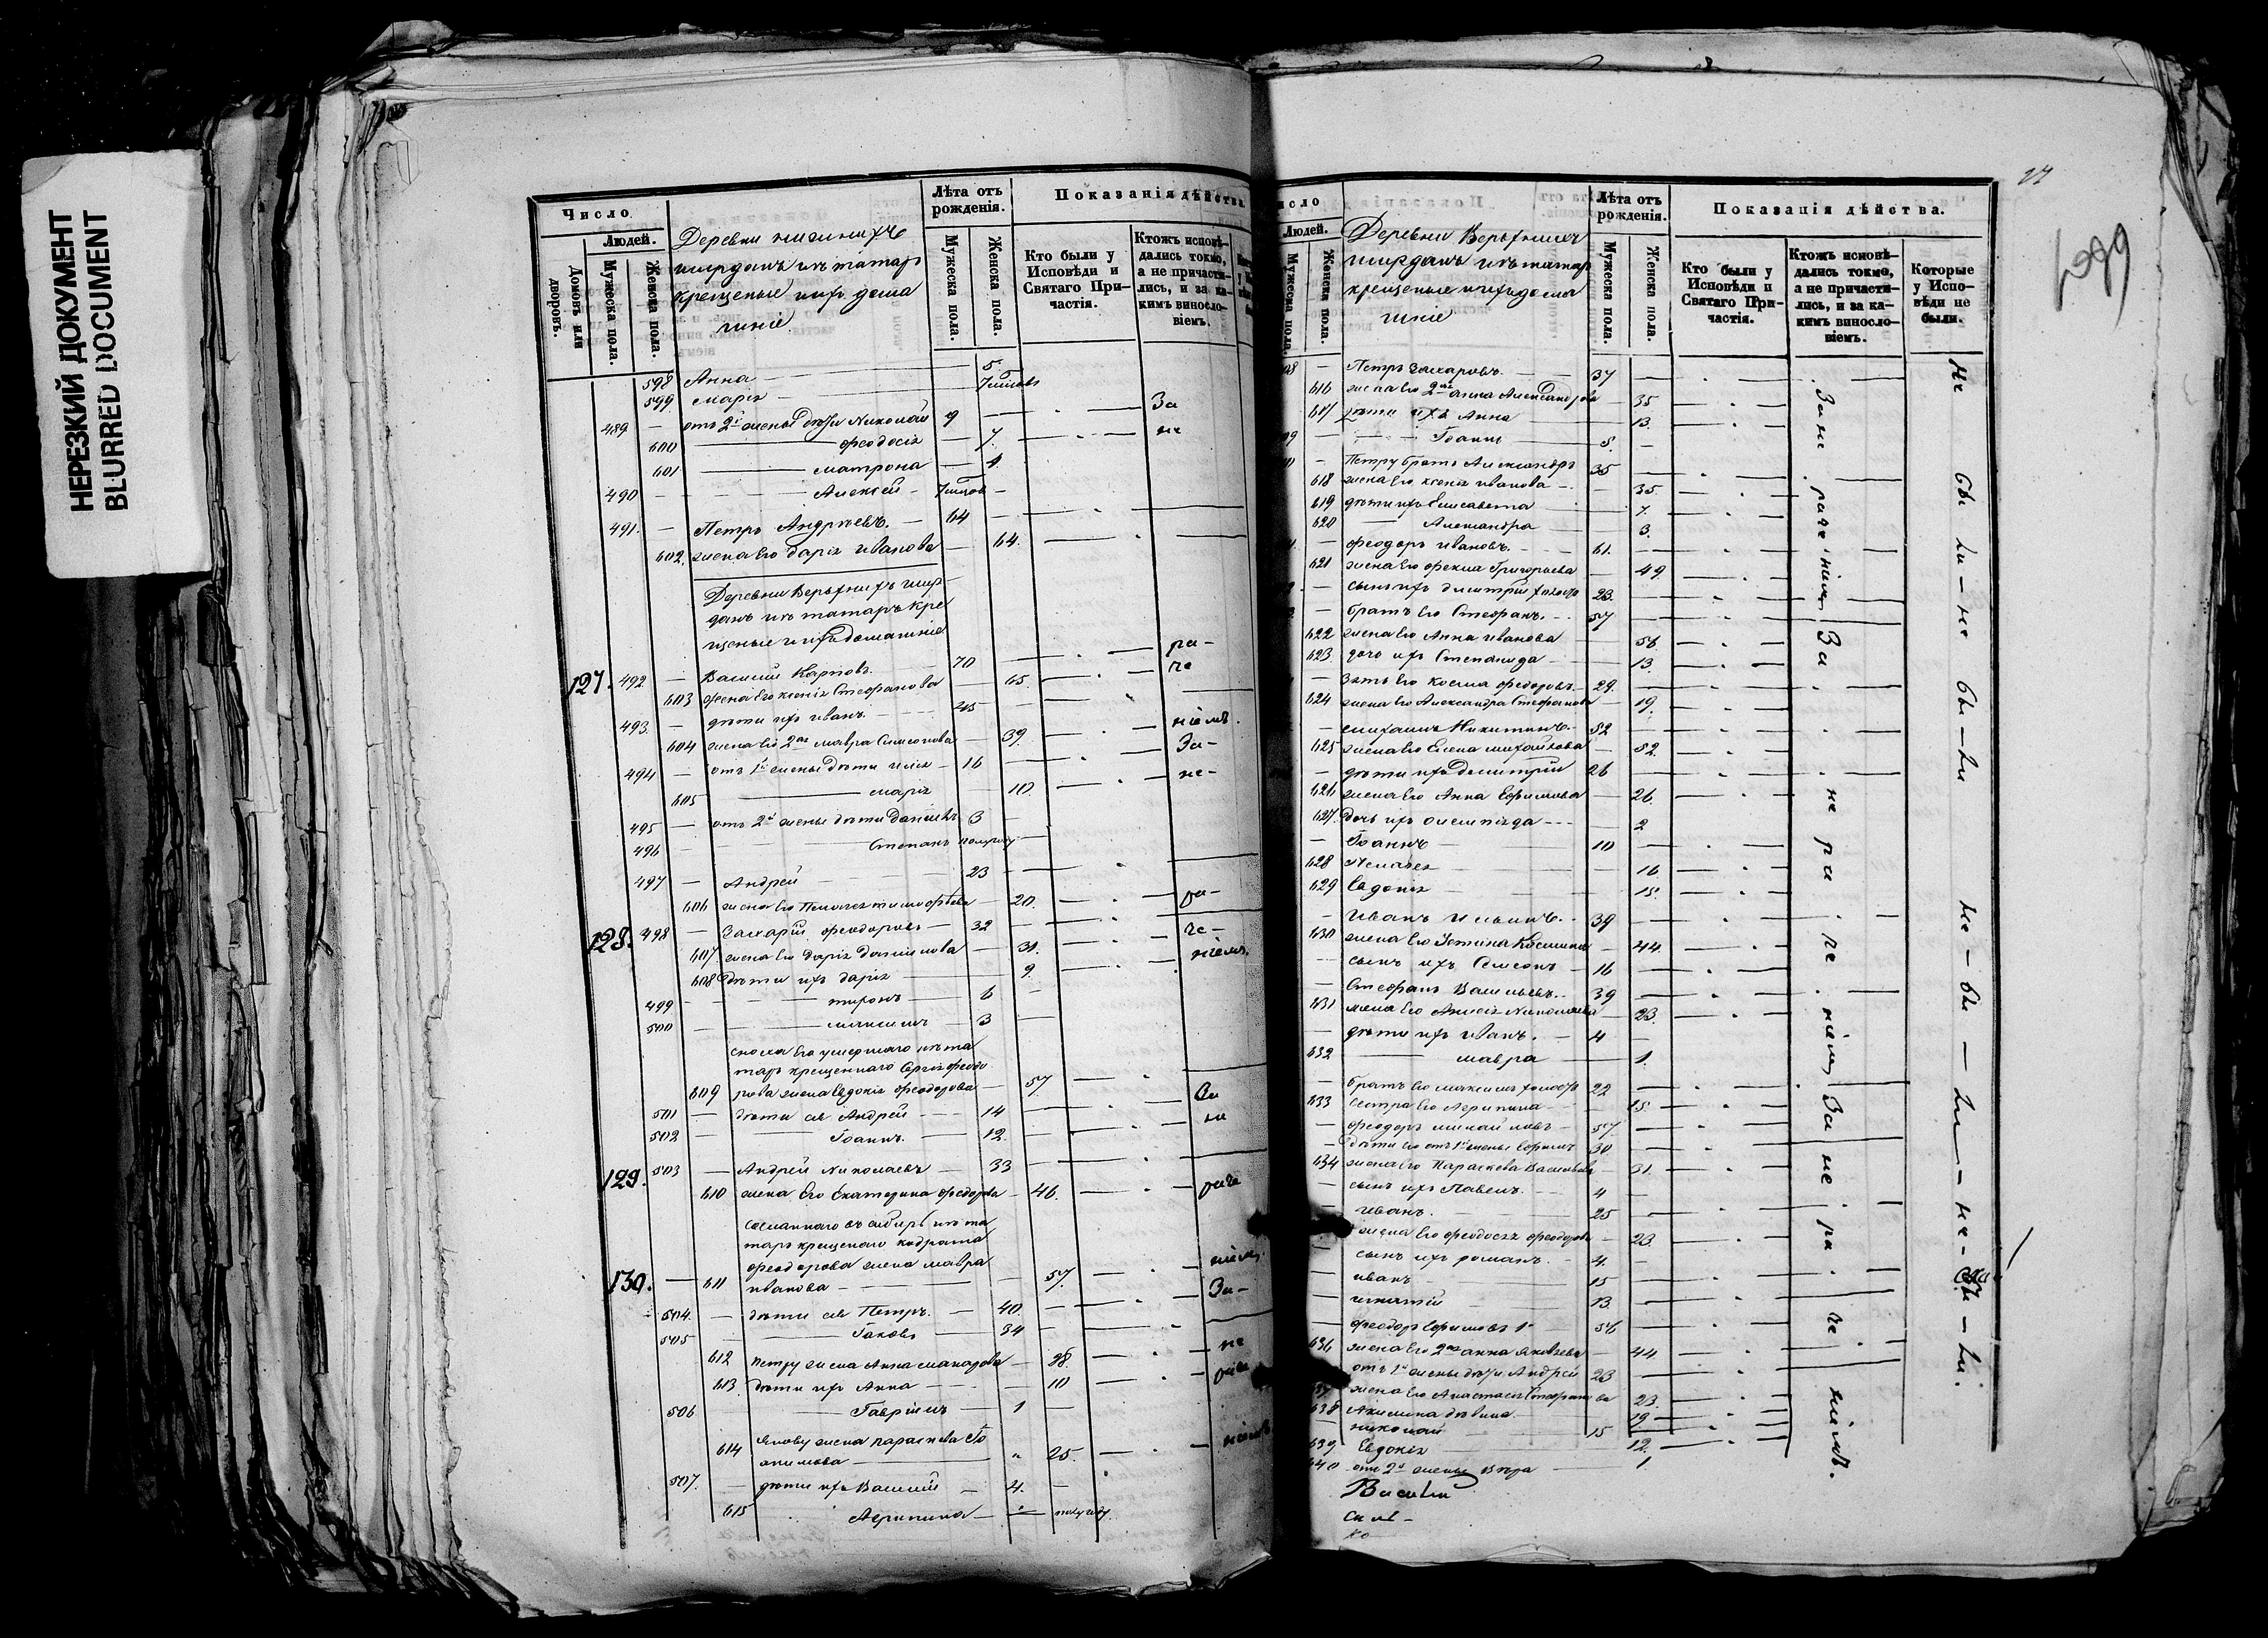 НЕРЕЗКИЙ ДОКУМЕНТ
BLURRED DOCUMENT
Число
Людей.
Домовъ или дворовъ.
Мужеска пола.
Женска пола.
Деревни нижнихъ
ширданъ изъ татаръ
крещеные и ихъ дома
шніе
Лѣта отъ рожденія.
Мужеска пола.
Женска пола.
Показанія дѣйства
Кто были у Исповѣди и Святаго Причастія.
Ктожъ исповѣдались токмо, а не причастились, и за какимъ винословіемъ.
598 Анна — 5
599 Марія — 7 мѣсяцовъ
489 — отъ 2й жены дѣти Николай 9
600 — Феодосія — 7.
601 — Матрона — 1
490 — Алексей — 7 мѣсяцов
491. — Петръ Андреевъ. — 64
602. жена его Дарія Иванова — 64.
Деревни Верьхнихъ шир-
данъ изъ татаръ кре
щеные и ихъ домашніе
127. 492 — Василій Карповъ. 70
603 жена его Ксенія Стефанова — 65.
493. — дѣти ихъ Иванъ. 45
604 жена его 2ая Мавра Симеонова — 39.
494 — отъ 1й жены дѣти Илія — 16
605 — Марія 10.
495 — отъ 2й жены дѣти Даніилъ 3
496 — Степанъ полугоду
497 — Андрей 23
606 жена его Пелагея Тимофѣева — 20.
128. 498 — Захарій Феодоровъ — 32
607. жена его Дарія Даниилова — 31.
608 дѣти ихъ Дарія — 9.
499 — Тихонъ — 6
500 — Максимъ — 3
сноха его умершаго изъ та
таръ крещеннаго Сергія Феодо
609 рова жена Евдокія Феодорова — 57.
501 — дѣти ея Андрей — 14
502 — Іоаннъ. — 12.
129. 503 — Андрей Николаевъ — 33
610 жена его Екатерина Федорова — 46.
сосланнаго въ сибирь изъ та
таръ крещенаго Кодрата
Феодорова жена Мавра
130. — 611 Иванова — 57.
504. — дѣти ея Петръ. — 40.
505 — Іаковъ 34
612 Петру жена Анна Макарова — 38.
613. дѣти ихъ Анна — 10
506 — Гавріилъ — 1
614 Якову жена Параскева Іо
акимова — 25.
507. — дѣти ихъ Василій — 4.
615 Агрипина — полугоду.
За не ра- че ніемъ. За- не- ра- че- ніемъ. За не раче ніемъ. За- не раче ніемъ
Людей.
Мужеска пола.
Женска пола.
Деревни Верьхнихъ
ширданъ изъ татаръ
крещеные и ихъ дома
шніе
Лѣта отъ рожденія.
Мужеска пола.
Женска пола.
Показанія дѣйства.
Кто были у Исповѣди и Святаго Причастія.
Ктожъ исповѣдались токмо, а не причастились, и за какимъ винословіемъ.
Которые у Исповѣди не были.
Петръ Захаровъ. 37
616 жена его 2ая Анна Александрова — 35
617 дѣти ихъ Анна 13.
Іоаннъ 5.
Петру братъ Александръ 35
618 жена его Ксенія Иванова — 35.
619 дѣти ихъ Елисавета 7.
620 — Александра 3.
Феодоръ Ивановъ. 61.
621 жена его Фекла Григорьева 49
сынъ ихъ Димитрій холостъ 23.
братъ его Стефанъ. 57
622 жена его Анна Иванова 56
623. дочь ихъ Степанида 13.
Зять его Косма Федоровъ. 29.
624 жена его Александра Стефанова 19.
Михаилъ Никитинъ. 52
625 жена его Елена Михайлова 52.
дѣти ихъ Димитрій 26
626 жена его Анна Ефимова 26.
627. дочь ихъ Олимпіада 2
Іоаннъ 10
628 Пелагея 16
629 Евдокія 15.
Иванъ Ильинъ. 39
630 жена его Устина Космина 44.
сынъ ихъ Симеонъ — 16
Стефанъ Васильевъ. 39
631 жена его Анисія Николаева 23.
дѣти ихъ Иванъ. 4
632 — Мавра 1.
братъ его Максимъ холостъ 22
633 сестра его Агрипина 15.
Феодоръ Михайловъ 57.
дѣти его отъ 1й жены Ефимъ 30
634 жена его Параскева Васильева 31.
сынъ ихъ Павелъ. 4
Иванъ. 25
жена его Феодосія Феодорова 23.
сынъ ихъ Романъ. 4.
Иванъ 15
Игнатій 13.
Феодоръ Ефимовъ 1й 56
636 жена его 2ая Анна Яковлева 44.
отъ 1й жены дѣти Андрей 23
жена его Анастасія Стефанова 23.
638 Акилина дѣвица. 19
Николай 15
639. Евдокія 12.
640 отъ 2й жены Вѣра 1.
За не раченіемъ За не ра че ніемъ За не ра че ніемъ.
не бы ли — не бы — ли не — бы — ли — не — бы — ли.